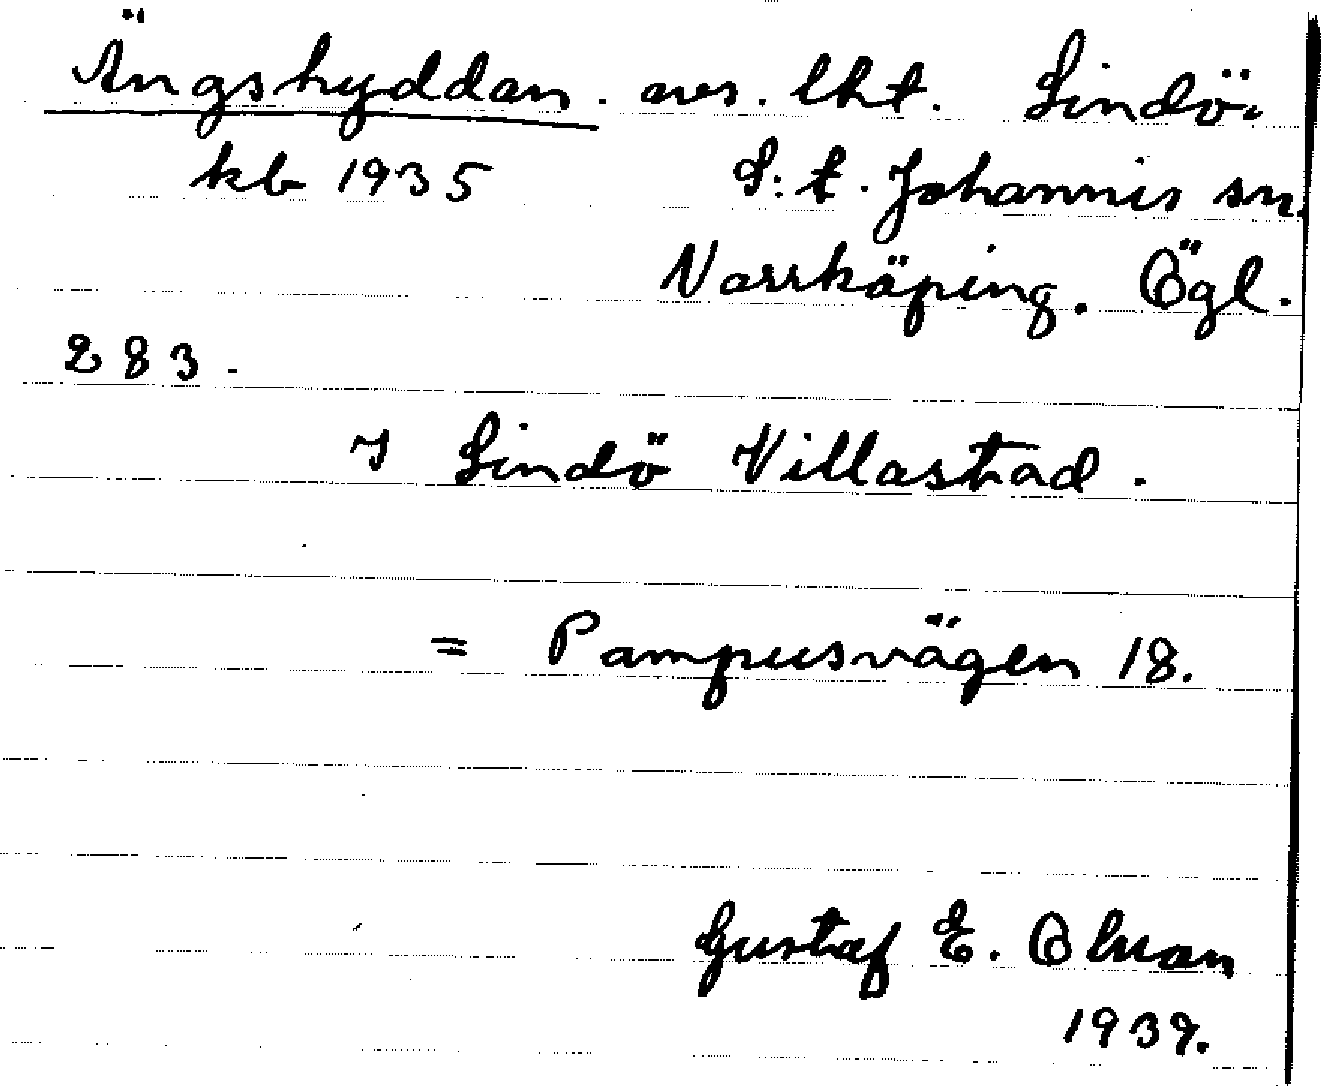 Ängshyddan. avs. lht. Lindö.
kb 1935 S:t. Johannis sn.
Norrköping. Ögl.
283.
I Lindö Villastad.
= Pampusvägen 18.
Gustaf E. Olson
1939.